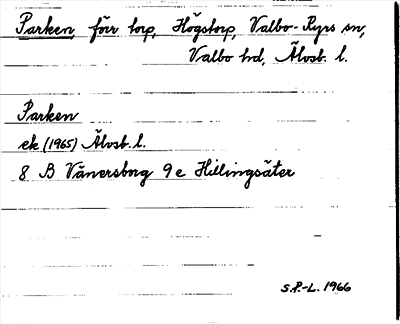 Parken, förr torp, Högstorp, Valbo-Ryrs sn,
Valbo hd, Älvsb. l.
Parken
ek (1965) Älvsb. l.
8 B Vänersborg 9 e Hillingsäter
S.P.-L. 1966